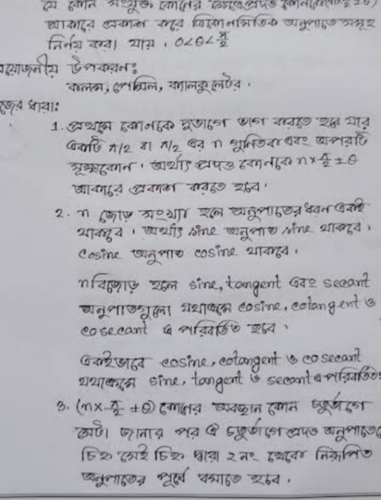 যে কোন সংযুক্ত কোনের
আকারে প্রকাশ করে ত্রিকোনমিতিক অনুপাত সমূহ
নির্ণয় করা যায় . 0<θ<π/2
য়োজনীয় উপকরনঃ
কলম, পেন্সিল, ক্যালকুলেটর .
জের ধারাঃ
1. প্রথমে কোনকে দুভাগে ভাগ করতে হবে যার
একটি π/2 বা π/2 এর n গুনিতক এবং অপরটি
সূক্ষ্মকোন . অর্থাৎ প্রদত্ত কোনকে n×π/2±θ
আকারে প্রকাশ করতে হবে .
2. n জোড় সংখ্যা হলে অনুপাতের ধরন একই
থাকবে . অর্থাৎ sine অনুপাত sine থাকবে .
cosine অনুপাত cosine থাকবে .
n বিজোড় হলে sine, tangent এবং secant
অনুপাতগুলো যথাক্রমে cosine, cotangent ও
cosecant এ পরিবর্তিত হবে .
একইভাবে cosine, cotangent ও cosecant
যথাক্রমে sine, tangent ও secant এ পরিবর্তিত
3. (n×π/2 ±θ) কোনের অবস্থান কোন চতুর্ভাগে
সেটা জানার পর ঐ চতুর্ভাগে প্রদত্ত অনুপাতের
চিহ্ন সেই চিহ্ন দ্বারা ২ নং থেকে নিরূপিত
অনুপাতের পূর্বে বসাতে হবে .